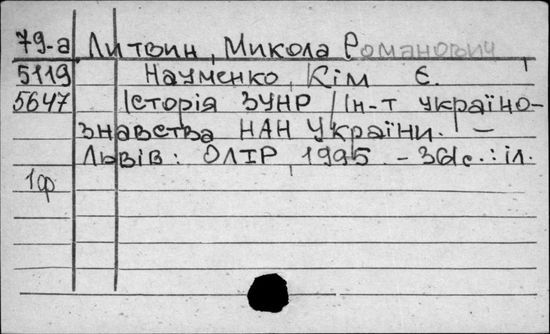 79-а Литвин, Микола Романович
5119 Науменко, Кім Є.
5647 Історія ЗУНР / Ін-т україно-
знавства НАН України. -
Львів: ОЛІР, 1995. - 361с.: іл.
1ф